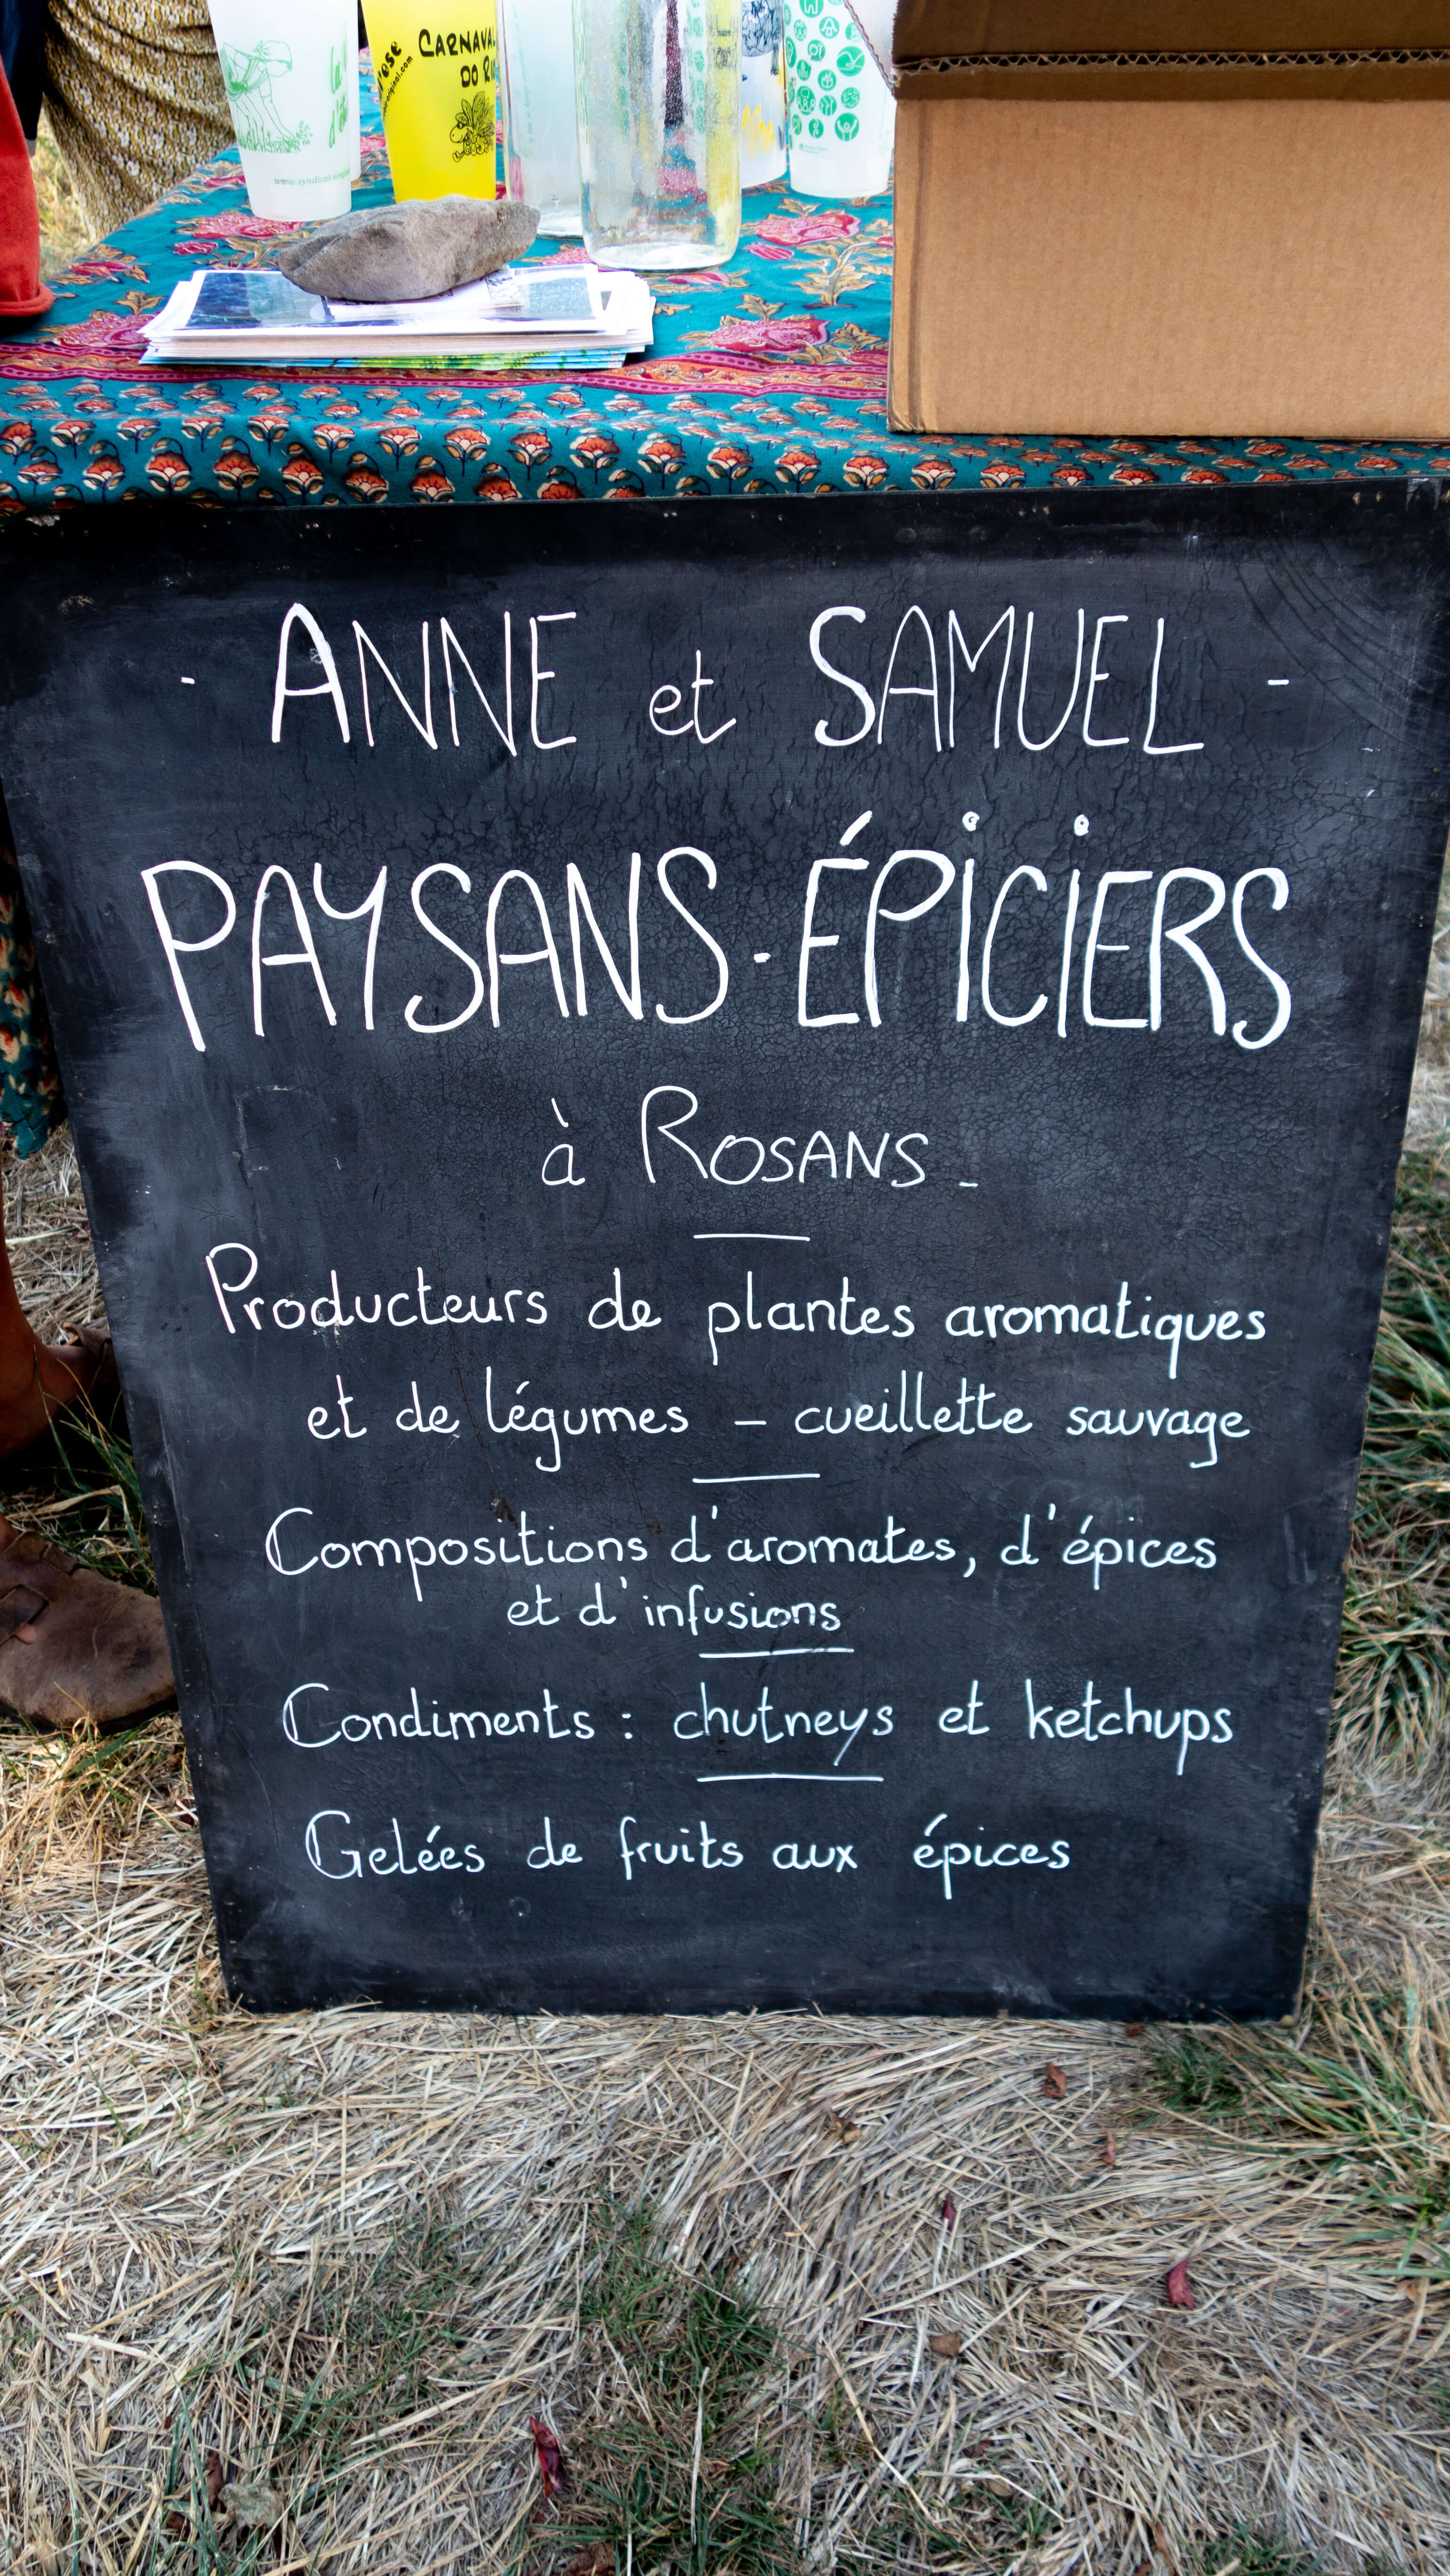 CARNAVAL
DO RIO
- ANNE et SAMUEL -
PAYSANS-ÉPICIERS
à ROSANS -
Producteurs de plantes aromatiques
et de légumes - cueillette sauvage
Compositions d'aromates, d'épices
et d'infusions
Condiments : chutneys et ketchups
Gelées de fruits aux épices